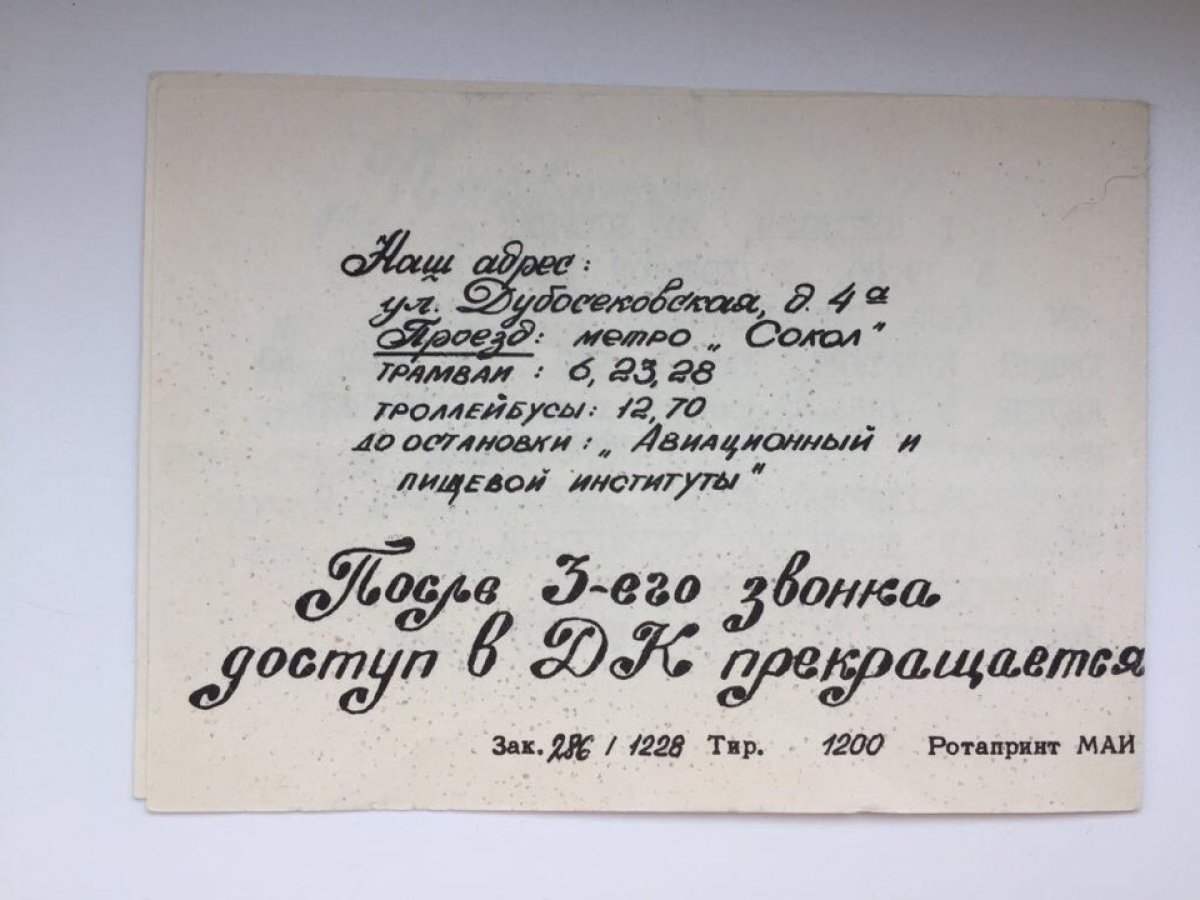 Наш адрес:
ул. Дубосековская, д. 4а
Проезд: метро „Сокол"
ТРАМВАИ: 6, 23, 28
ТРОЛЛЕЙБУСЫ: 12, 70
ДО ОСТАНОВКИ: „АВИАЦИОННЫЙ И
ПИЩЕВОЙ ИНСТИТУТЫ"
После 3-его звонка
доступ в ДК прекращается
Зак. 286 / 1228 Тир. 1200 Ротапринт МАИ